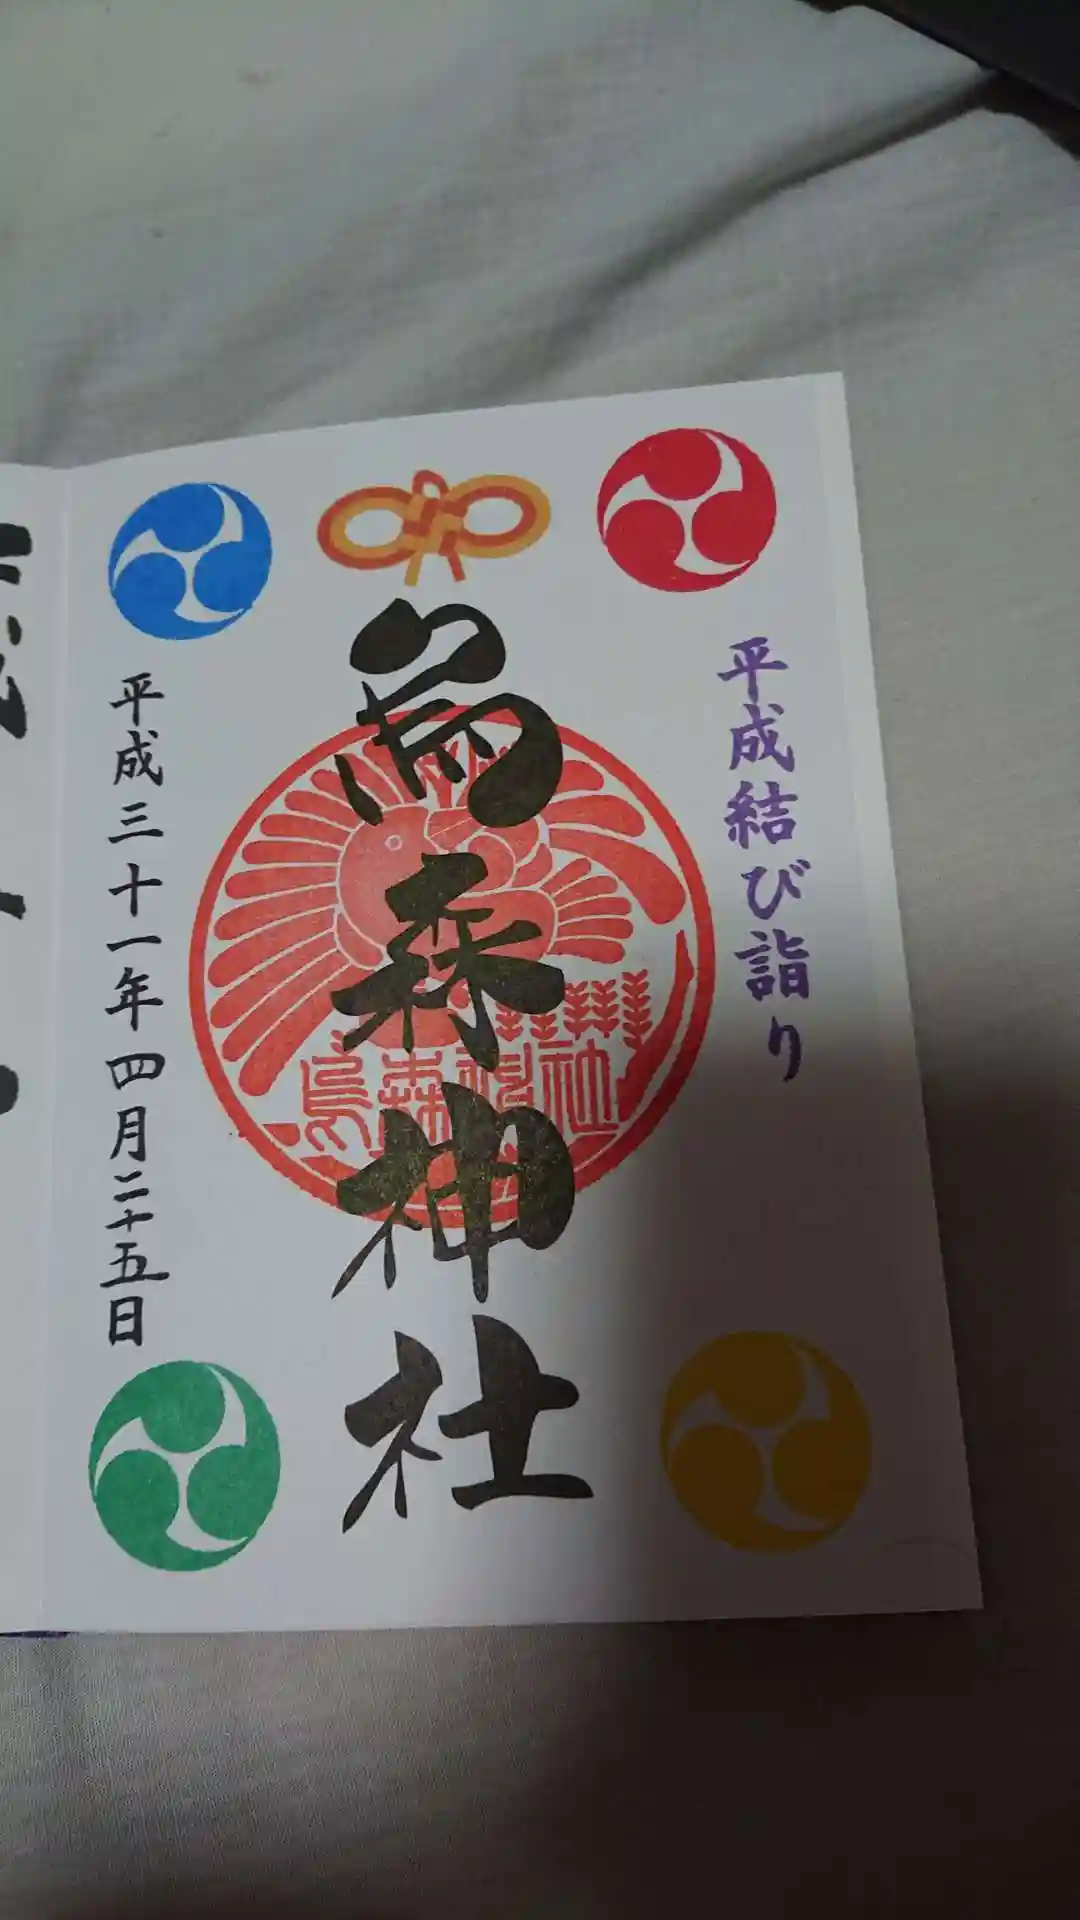 平成結び詣り
烏森神社
烏森神社
平成三十一年四月二十五日